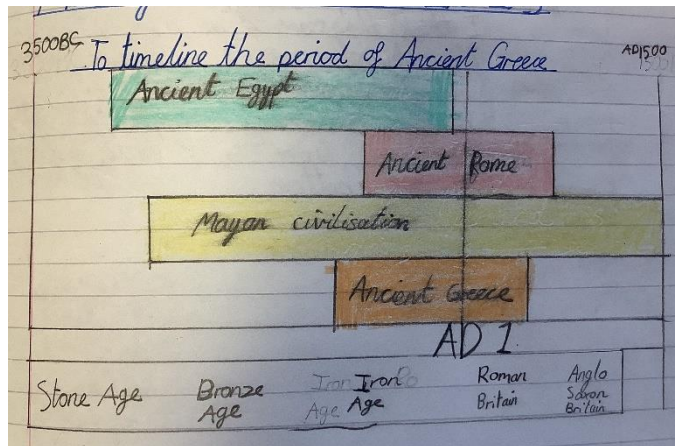 3500BC
To timeline the period of Ancient Greece
AD1500
Ancient Egypt
Ancient Rome
Mayan civilisation
Ancient Greece
AD 1
Stone Age
Bronze
Age
Iron
Age
Iron
Age
Roman
Britain
Anglo
Saxon
Britain